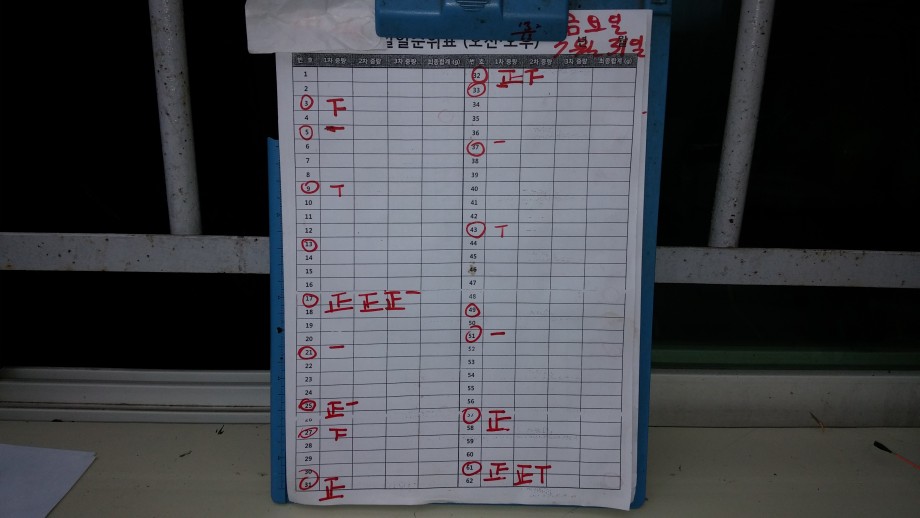 금요일
일일순위표 (오전·오후)
7월 31일
번 호 1차 중량 2차 중량 3차 중량 최종합계 (g) 번 호 1차 중량 2차 중량 3차 중량 최종합계 (g)
1 32 正 下
2 33
3 下 34
4 35
5 一 36
6 37 一
7 38
8 39
9 T 40
10 41
11 42
12 43 T
13 44
14 45
15 46
16 47
17 正 正 正 一 48
18 49
19 50
20 51 一
21 一 52
22 53
23 54
24 55
25 正 一 56
26 57 正
27 下 58
28 59
29 60
30 61 正 正 T
31 正 62